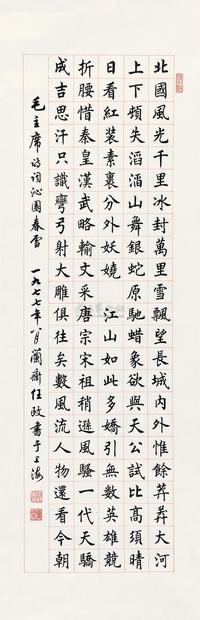 北國風光千里冰封萬里雪飄望長城內外惟餘莽莽大河
上下頓失滔滔山舞銀蛇原馳蠟象欲與天公試比高須晴
日看紅裝素裹分外妖嬈 江山如此多嬌引無數英雄競
折腰惜秦皇漢武略輸文采唐宗宋祖稍遜風騷一代天驕
成吉思汗只識彎弓射大雕俱往矣數風流人物還看今朝
毛主席詩詞沁園春雪 一九七七年八月蘭齋任政書于上海